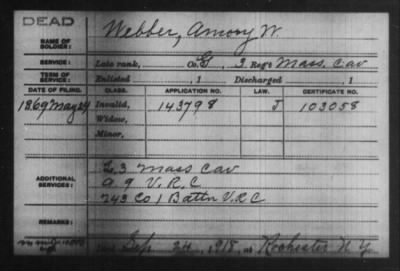 DEAD
NAME OF SOLDIER: Webber, Amory W.
SERVICE: Late rank, Co. G, 3 Reg't Mass. Cav
TERM OF SERVICE: Enlisted , 1 Discharged , 1
DATE OF FILING. CLASS. APPLICATION NO. LAW. CERTIFICATE NO.
1869 May 24 Invalid, 143798 J 103058
Widow,
Minor,
ADDITIONAL SERVICES: L. 3 Mass Cav
A. 9 V.R.C
243 Co 1 Battn V.R.C
REMARKS:
Sep. 24, 1918, at Rochester N.Y.